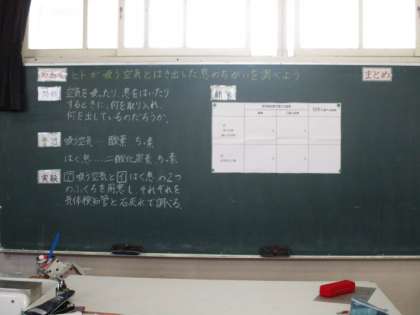 ヒトが吸う空気とはき出した息のちがいを調べよう
まとめ
問題
空気を吸ったり、息をはいたり
するときに、何を取り入れ、
何を出しているのだろうか。
結果
予想
吸う空気…酸素 ちっ素
はく息…二酸化炭素 ちっ素
実験
ア吸う空気とイはく息の2つ
のふくろを用意し それぞれを
気体検知管と石灰水で調べる。